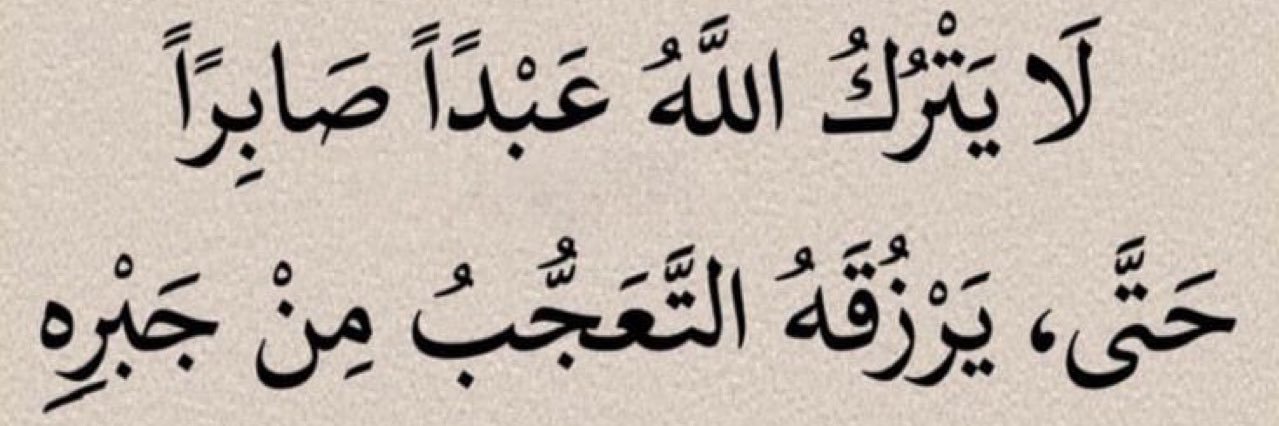 لَا يَتْرُكُ اللَّهُ عَبْدًاً صَابِرًاً
حَتَّى، يَرْزُقَهُ التَّعَجُّبُ مِنْ جَبْرِهِ